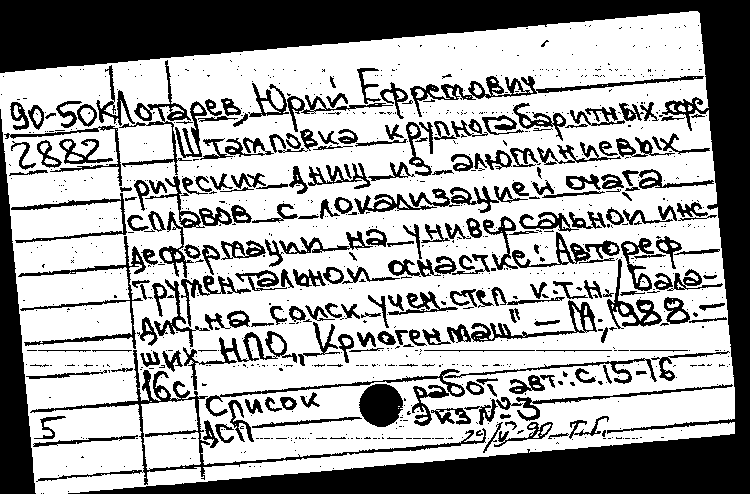 90-50К Лотарев, Юрий Ефремович
2882 Штамповка крупногабаритных сфе
рических днищ из алюминиевых
сплавов с локализацией очага
деформации на универсальной инс-
трументальной оснастке: Автореф
дис. на соиск. учен. степ. к.т.н. / Бала-
ших НПО „Криогенмаш". – М., 1988. –
16с
Список работ авт.: с.15-16
5 ДСП Экз № 3
29/V-90 Т.Г.